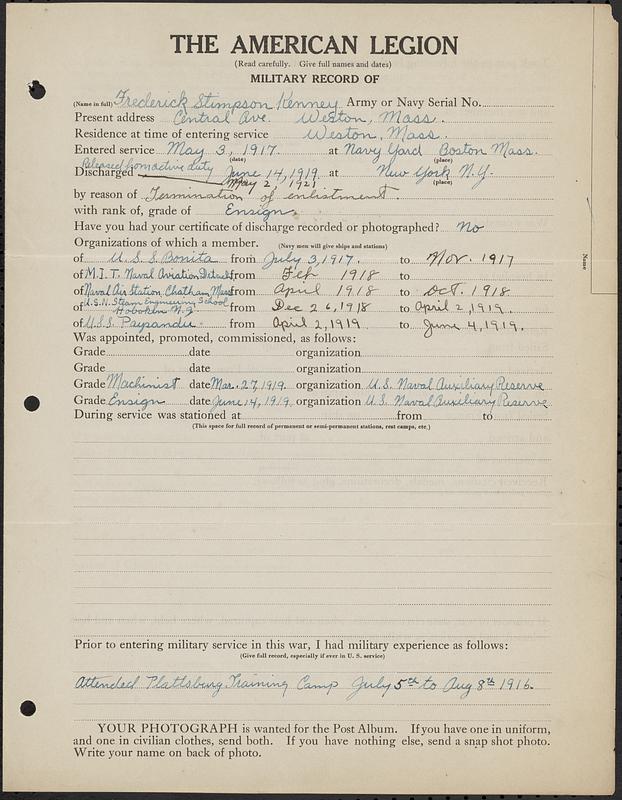 THE AMERICAN LEGION
(Read carefully. Give full names and dates)
MILITARY RECORD OF
(Name in full) Frederick Stimpson Kenney Army or Navy Serial No.
Present address Central Ave. Weston, Mass.
Residence at time of entering service Weston, Mass.
Entered service May 3, 1917. at Navy Yard Boston Mass.
(date) (place)
Released from active duty
Discharged June 14, 1919. at New York N.Y.
May 2, 1921 (place)
by reason of Termination of enlistment.
with rank of, grade of Ensign
Have you had your certificate of discharge recorded or photographed? No
Organizations of which a member. (Navy men will give ships and stations)
of U.S.S. Bonita from July 3, 1917. to Nov. 1917
of M.I.T. Naval Aviation Detach from Feb 1918 to
of Naval Air Station, Chatham, Mass from April 1918 to Oct. 1918
U.S.N. Steam Engineering School
of Hoboken N.J. from Dec 26, 1918 to April 2, 1919.
of U.S.S. Paysandu from April 2, 1919 to June 4, 1919.
Was appointed, promoted, commissioned, as follows:
Grade date organization
Grade date organization
Grade Machinist date Mar. 27, 1919. organization U.S. Naval Auxiliary Reserve
Grade Ensign date June 14, 1919. organization U.S. Naval Auxiliary Reserve
During service was stationed at from to
(This space for full record of permanent or semi-permanent stations, rest camps, etc.)
Prior to entering military service in this war, I had military experience as follows:
(Give full record, especially if ever in U. S. service)
Attended Plattsburg Training Camp July 5th to Aug 8th 1916.
YOUR PHOTOGRAPH is wanted for the Post Album. If you have one in uniform,
and one in civilian clothes, send both. If you have nothing else, send a snap shot photo.
Write your name on back of photo.
Name